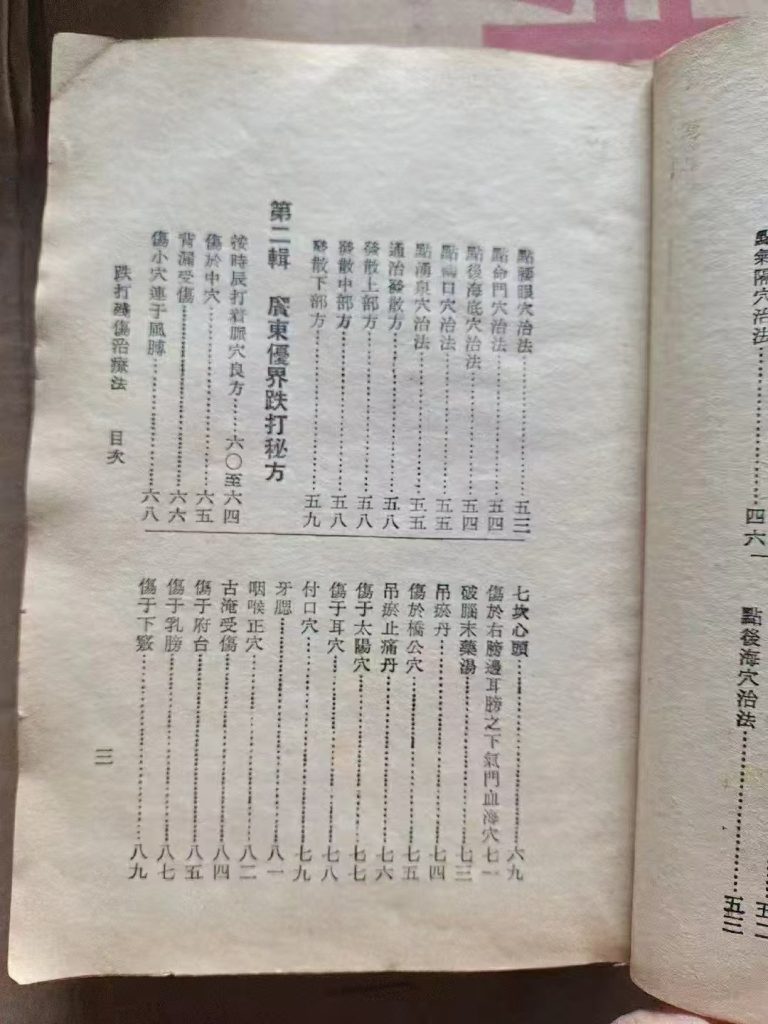 點氣隔穴治法……四六
點後海穴治法……五三
點腰眼穴治法……五三
點命門穴治法……五四
點後海底穴治法……五四
點鶴口穴治法……五五
點湧泉穴治法……五五
通治發散方……五八
發散上部方……五八
發散中部方……五八
發散下部方……五九
第二輯 廣東優界跌打秘方
按時辰打着脈穴良方……六〇至六四
傷於中穴……六五
背漏受傷……六六
傷小穴連子風膊……六八
七坎心頭……六九
傷於右膀邊耳膀之下氣門血海穴七一
破腦末藥湯……七三
吊瘀丹……七四
傷於橋公穴……七五
吊瘀止痛丹……七六
傷于太陽穴……七七
傷于耳穴……七八
付口穴……七九
牙腮……八一
咽喉正穴……八二
古淹受傷……八四
傷于府台……八五
傷于乳膀……八七
傷于下竅……八九
跌打殘傷治療法 目次
三